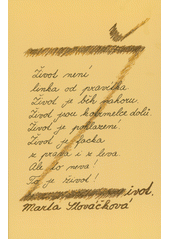 Život není
linka od pravítka.
Život je běh nahoru
Život jsou kotrmelce dolů.
Život je pohlazení.
Život je facka
z prava i z leva.
Ale to nevá!
To je život!
Život
Marta Nováčková